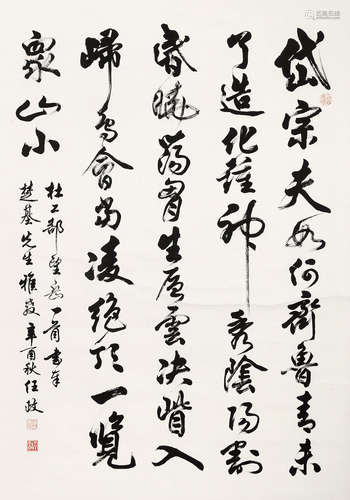 岱宗夫如何齊魯青未
了造化鍾神秀陰陽割
昏曉蕩胷生層雲決眥入
歸鳥會當凌絕頂一覽
衆山小
杜工部望嶽一首書奉
楚基先生雅教辛酉秋任政